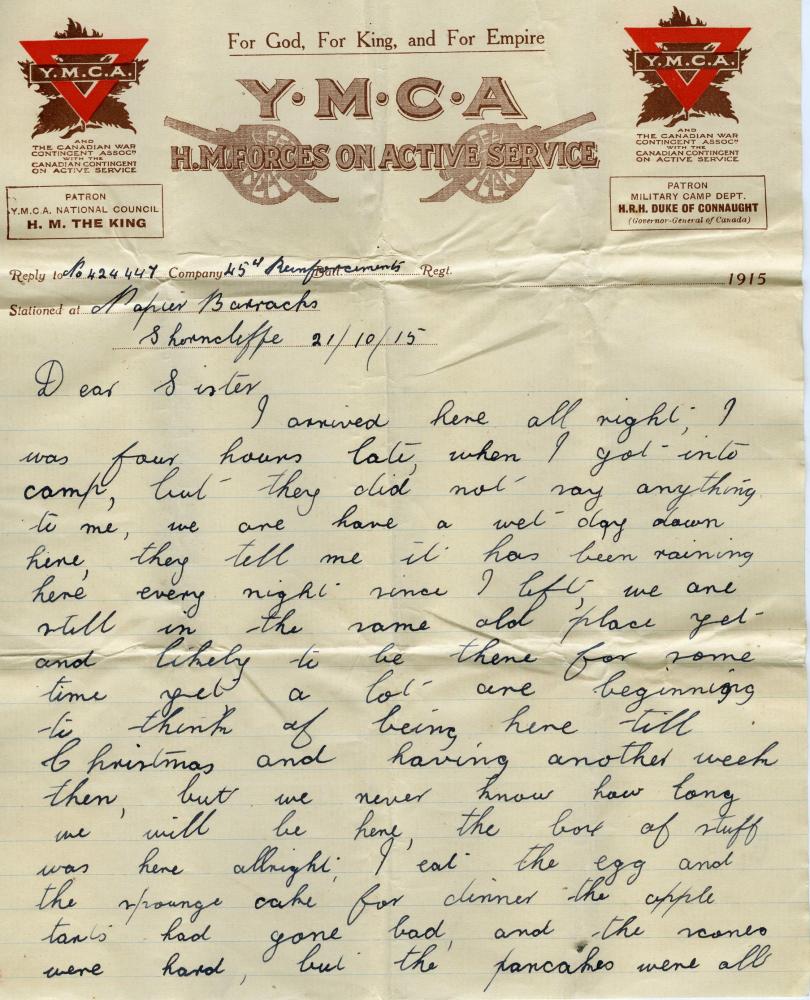 For God, For King, and For Empire
Y.M.C.A.
Y·M·C·A
Y.M.C.A.
H.M.FORCES ON ACTIVE SERVICE
AND
THE CANADIAN WAR
CONTINGENT ASSOCN
WITH THE
CANADIAN CONTINGENT
ON ACTIVE SERVICE
AND
THE CANADIAN WAR
CONTINGENT ASSOCN
WITH THE
CANADIAN CONTINGENT
ON ACTIVE SERVICE
PATRON
Y.M.C.A. NATIONAL COUNCIL
H. M. THE KING
PATRON
MILITARY CAMP DEPT.
H.R.H. DUKE OF CONNAUGHT
(Governor-General of Canada)
Reply to No 424447 Company 45th Reinforcements Batt. Regt.
1915
Stationed at Napier Barracks
Shorncliffe 21/10/15
Dear Sister
I arrived here all right, I
was four hours late, when I got into
camp, but they did not say anything
to me, we are have a wet day down
here, they tell me it has been raining
here every night since I left, we are
still in the same old place yet
and likely to be there for some
time yet a lot are beginning
to think of being here till
Christmas and having another week
then, but we never know how long
we will be here, the box of stuff
was here allright, I eat the egg and
the spounge cake for dinner the apple
tarts had gone bad, and the scones
were hard, but the pancakes were all